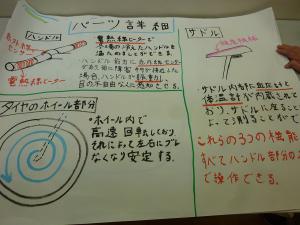 パーツ詳細
ハンドル
センサー
電熱線ヒーター
電熱線ヒーターで
冬場の冷えたハンドルを
温めることができる。
・ハンドル前方に
があり前に障害
場合、ハンドルが振動し
目の不自由な人に感知させる。
タイヤのホイール部分
・ホイール内で
高速回転しており
それによって左右にブレ
なくなり安定する。
サドル
・サドル内部に血圧計と
体温計が内蔵されて
おり、サドルに座ること
よって測ることがで
これらの3つの機能
すべてハンドル部分の
で操作できる。